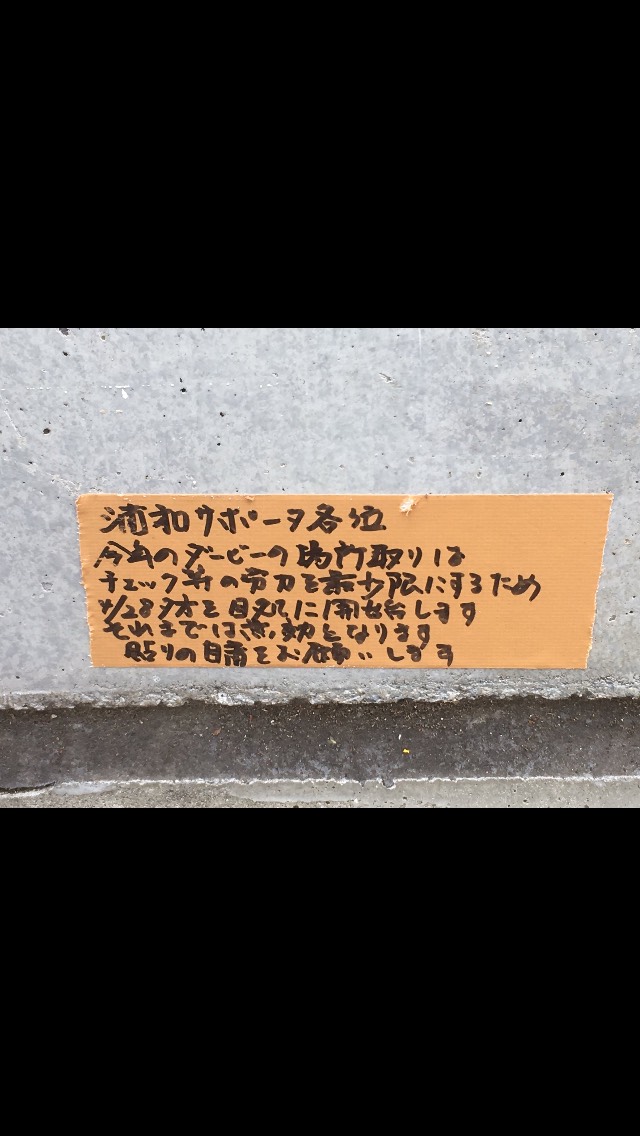 浦和サポータ各位
今年のダービーの場所取りは
チェック等の労力を最少限にするため
4/28夕方を目処に開始します
それまでは無効となります
貼りの自粛をお願いします